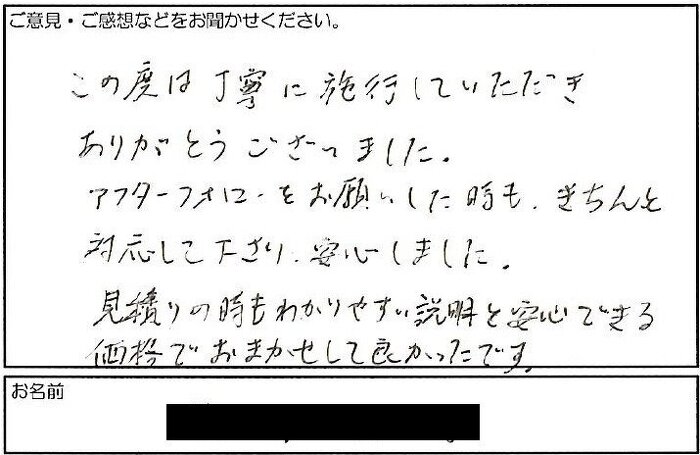 ご意見・ご感想などをお聞かせください。
この度は丁寧に施行していただき
ありがとうございました。
アフターフォローをお願いした時も、きちんと
対応して下さり、安心しました。
見積りの時もわかりやすい説明と安心できる
価格でおまかせして良かったです。
お名前